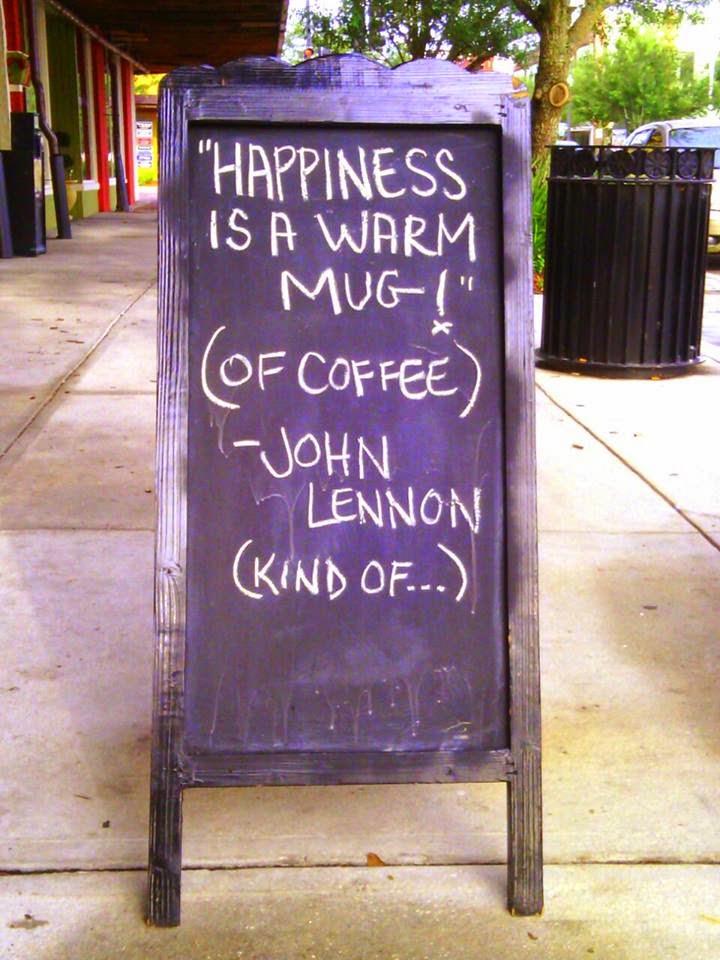 "HAPPINESS
IS A WARM
MUG!"
(OF COFFEE)
-JOHN
LENNON
(KIND OF...)